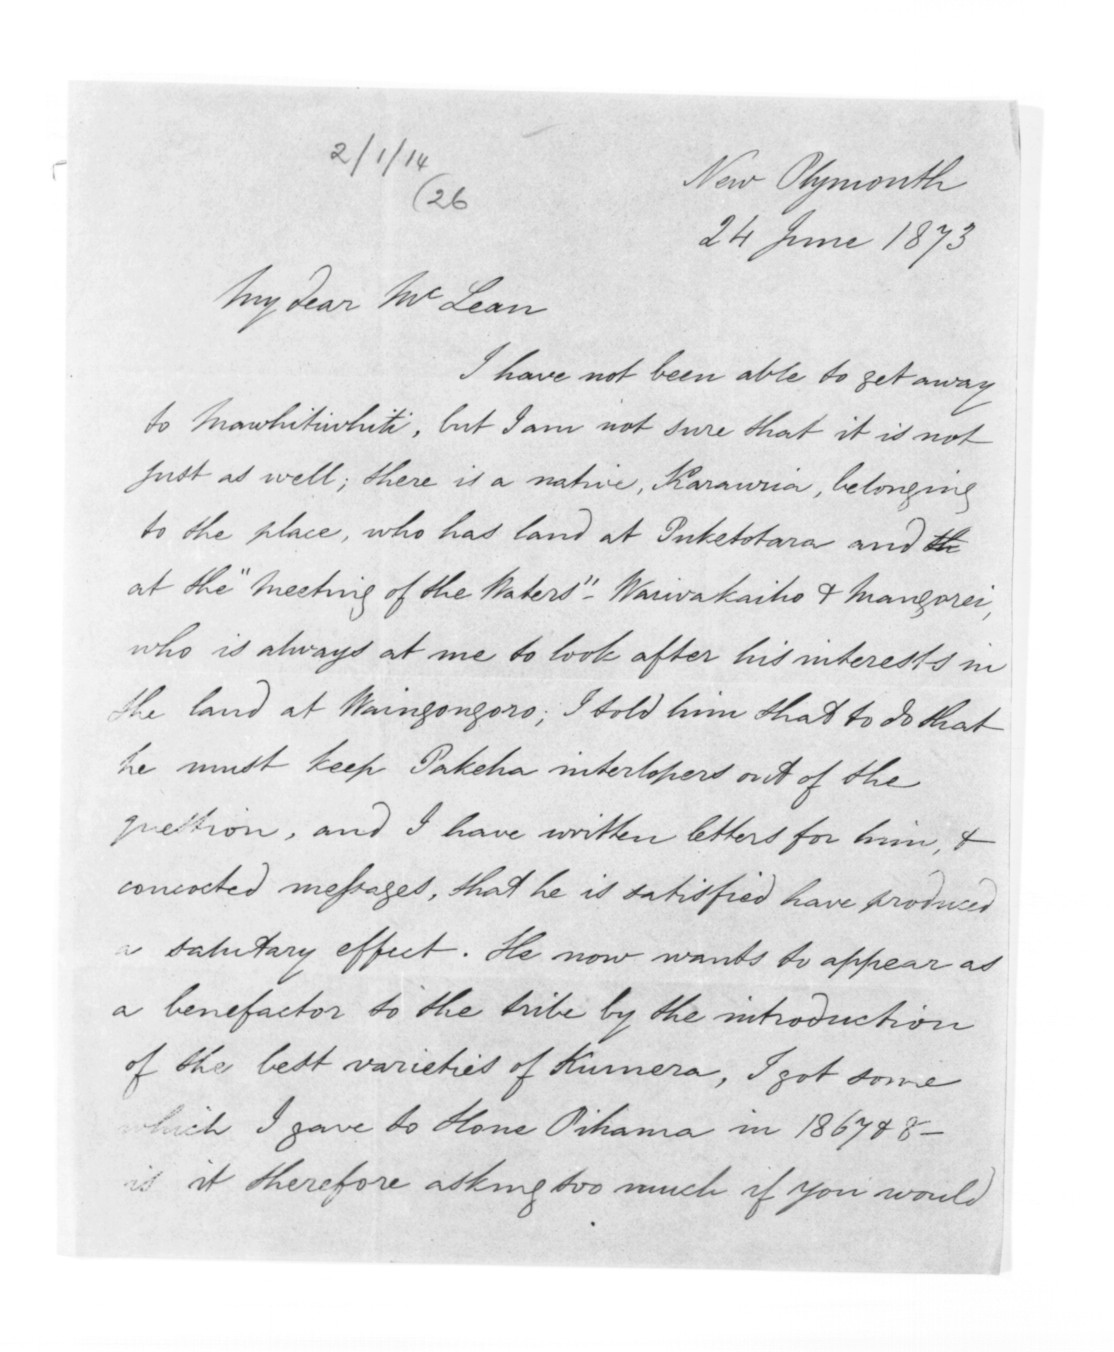 2/1/14
(26
New Plymouth
24 June 1873
My dear McLean
I have not been able to get away
to Mawhitiwhiti, but I am not sure that it is not
just as well; there is a native, Karawria, belonging
to the place, who has land at Puketotara and th
at the "Meeting of the Waters" - Waiwakaiho & Mangorei,
who is always at me to look after his interests in
the land at Waingongoro; I told him that to do that
he must keep Pakeha interlopers out of the
question, and I have written letters for him, &
concocted messages, that he is satisfied have produced
a salutary effect. He now wants to appear as
a benefactor to the tribe by the introduction
of the best varieties of Kumera, I got some
which I gave to Hone Pihama in 1867 & 8 -
is it therefore asking too much if you would